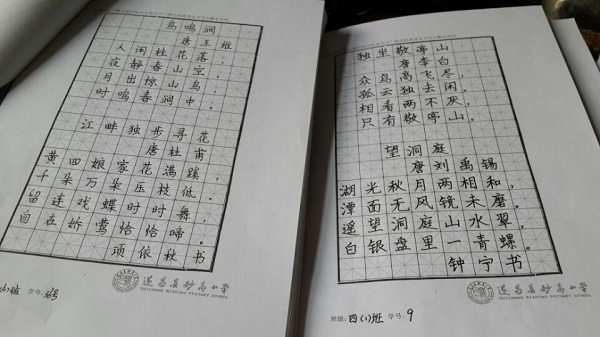 鸟鸣涧
唐王维
人闲桂花落，
夜静春山空。
月出惊山鸟，
时鸣春涧中。
江畔独步寻花
唐杜甫
黄四娘家花满蹊，
千朵万朵压枝低。
留连戏蝶时时舞，
自在娇莺恰恰啼。
项依秋书
遂昌县妙高小学
SUICHANG MIAOGAO PRIMARY SCHOOL
班 学号：
独坐敬亭山
唐李白
众鸟高飞尽，
孤云独去闲。
相看两不厌，
只有敬亭山。
望洞庭
唐刘禹锡
湖光秋月两相和，
潭面无风镜未磨。
遥望洞庭山水翠，
白银盘里一青螺。
钟宁书
遂昌县妙高小学
SUICHANG MIAOGAO PRIMARY SCHOOL
班级：四（1）班 学号：9